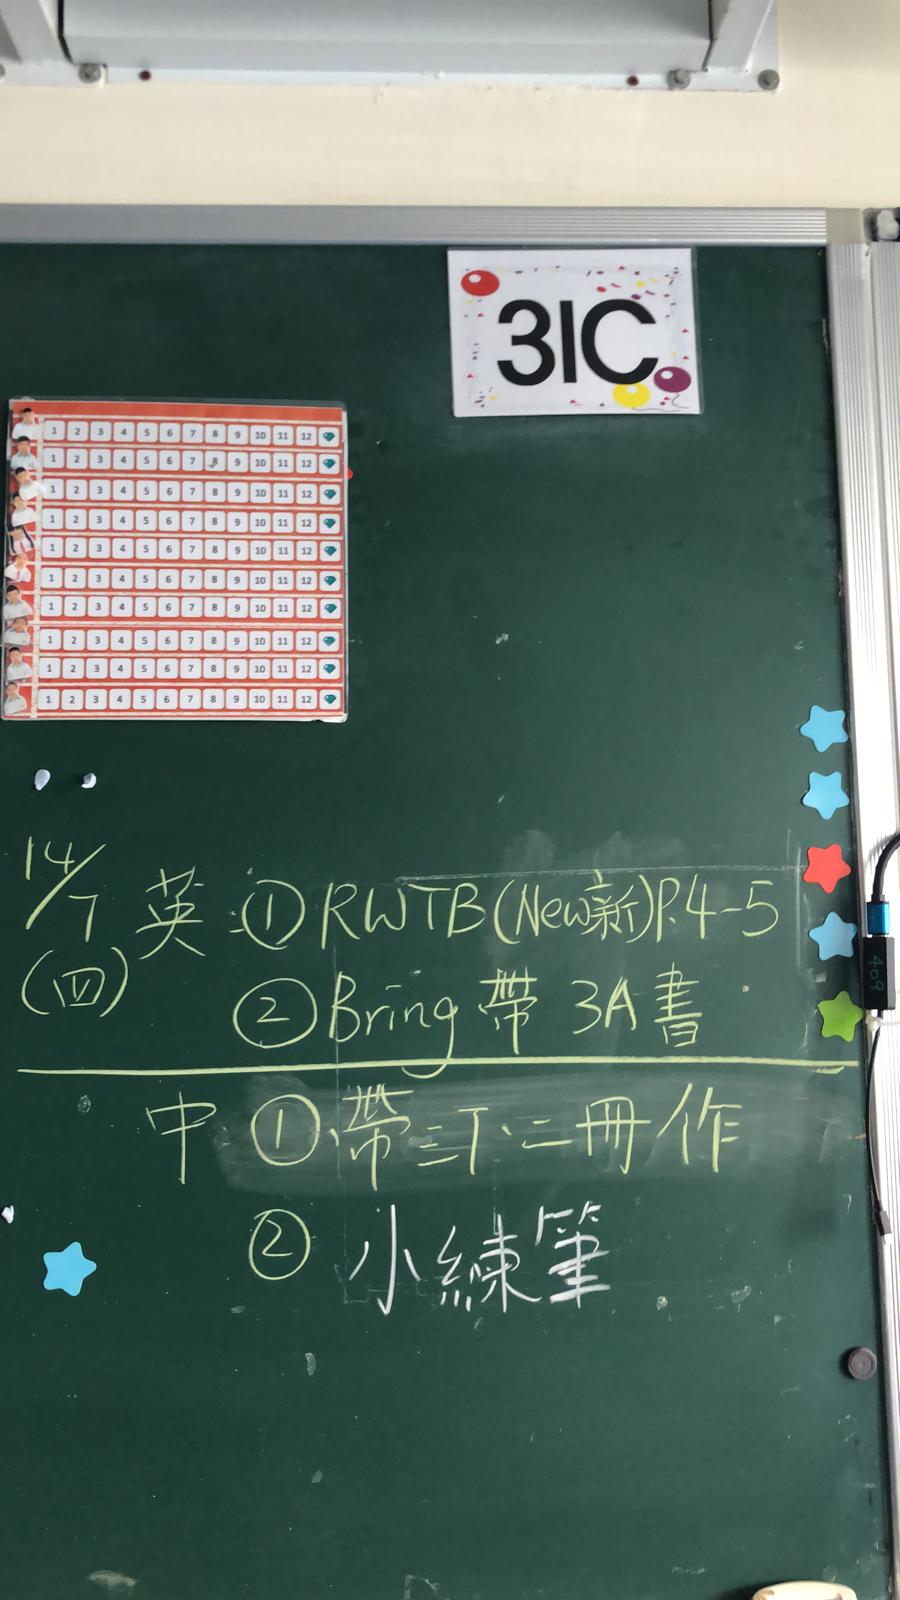 3IC
1 2 3 4 5 6 7 8 9 10 11 12
1 2 3 4 5 6 7 8 9 10 11 12
1 2 3 4 5 6 7 8 9 10 11 12
1 2 3 4 5 6 7 8 9 10 11 12
1 2 3 4 5 6 7 8 9 10 11 12
1 2 3 4 5 6 7 8 9 10 11 12
1 2 3 4 5 6 7 8 9 10 11 12
1 2 3 4 5 6 7 8 9 10 11 12
1 2 3 4 5 6 7 8 9 10 11 12
1 2 3 4 5 6 7 8 9 10 11 12
14/7 英:①RWTB(New新)P.4-5
(四) ②Bring 帶 3A 書
中 ①帶三下·二冊作
② 小練筆
409